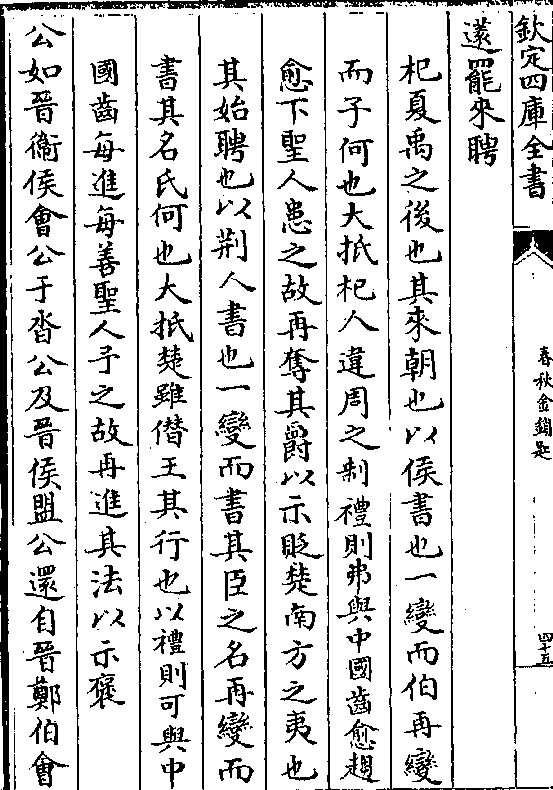 欽定四庫全書
春秋金鎖匙
四十五
薳罷來聘
杞夏禹之後也其來朝也以侯書也一變而伯再變
而子何也大抵杞人違周之制禮則弗與中國齒愈趨
愈下聖人患之故再奪其爵以示貶楚南方之夷也
其始聘也以荆人書也一變而書其臣之名再變而
書其名氏何也大抵楚雖僭王其行也以禮則可與中
國齒每進每善聖人予之故再進其法以示襃
公如晉衞侯會公于沓公及晉侯盟公還自晉鄭伯會